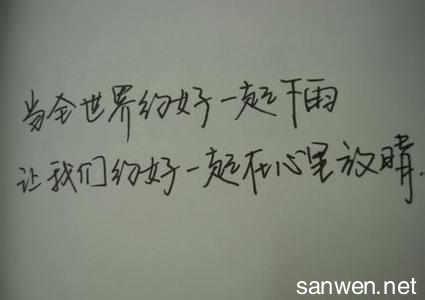 当全世界约好一起下雨
让我们约好一起在心里放晴.
sanwen.net